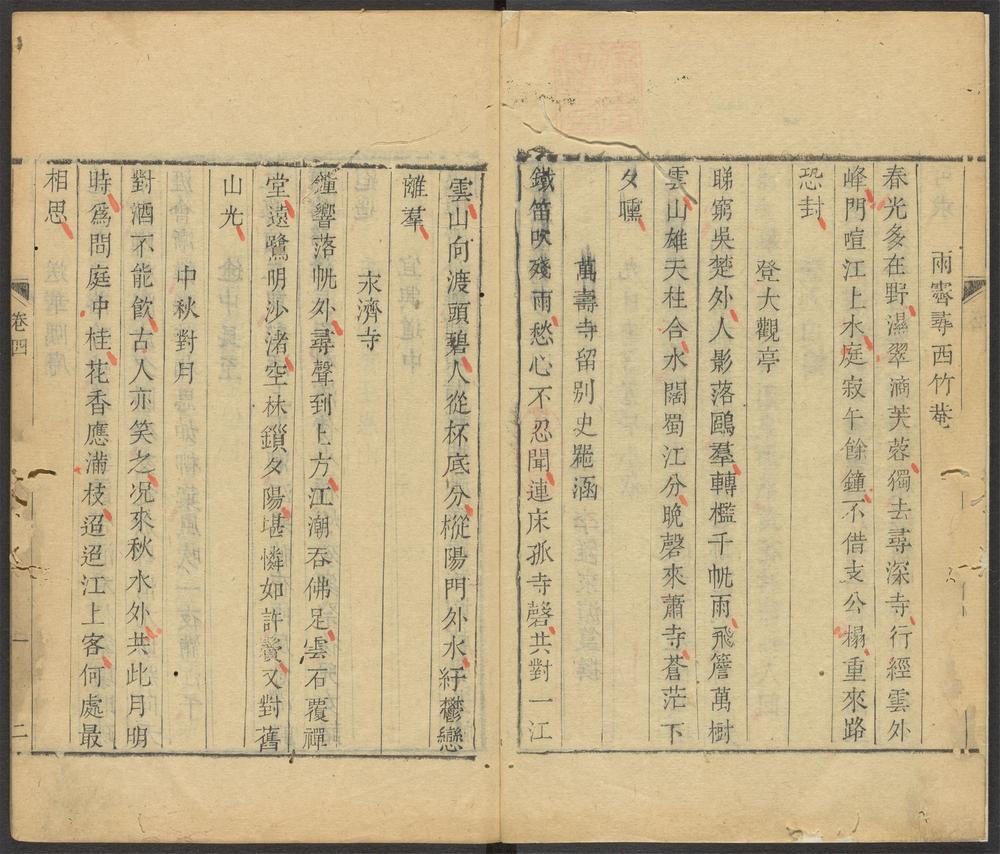 雨霽尋西竹菴
春光多在野濕翠滴芙蓉獨去尋深寺行經雲外
峰門喧江上水庭寂午餘鐘不借支公榻重來路
恐封
登大觀亭
睇窮吳楚外人影落鷗羣轉檻千帆雨飛簷萬樹
雲山雄天柱合水闊蜀江分晚磬來蕭寺蒼茫下
夕曛
萬壽寺留別史涵
鐵笛吹殘雨愁心不忍聞連床孤寺磬共對一江
雲山向渡頭碧人從杯底分樅陽門外水紆鬱戀
離羣
永濟寺
鐘響落帆外尋聲到上方江潮吞佛足雲石覆禪
堂遠鷺明沙渚空林鎖夕陽堪憐如許鬢又對舊
山光
中秋對月
對酒不能飲古人亦笑之况來秋水外共此月明
時爲問庭中桂花香應滿枝迢迢江上客何處最
相思
卷四
二